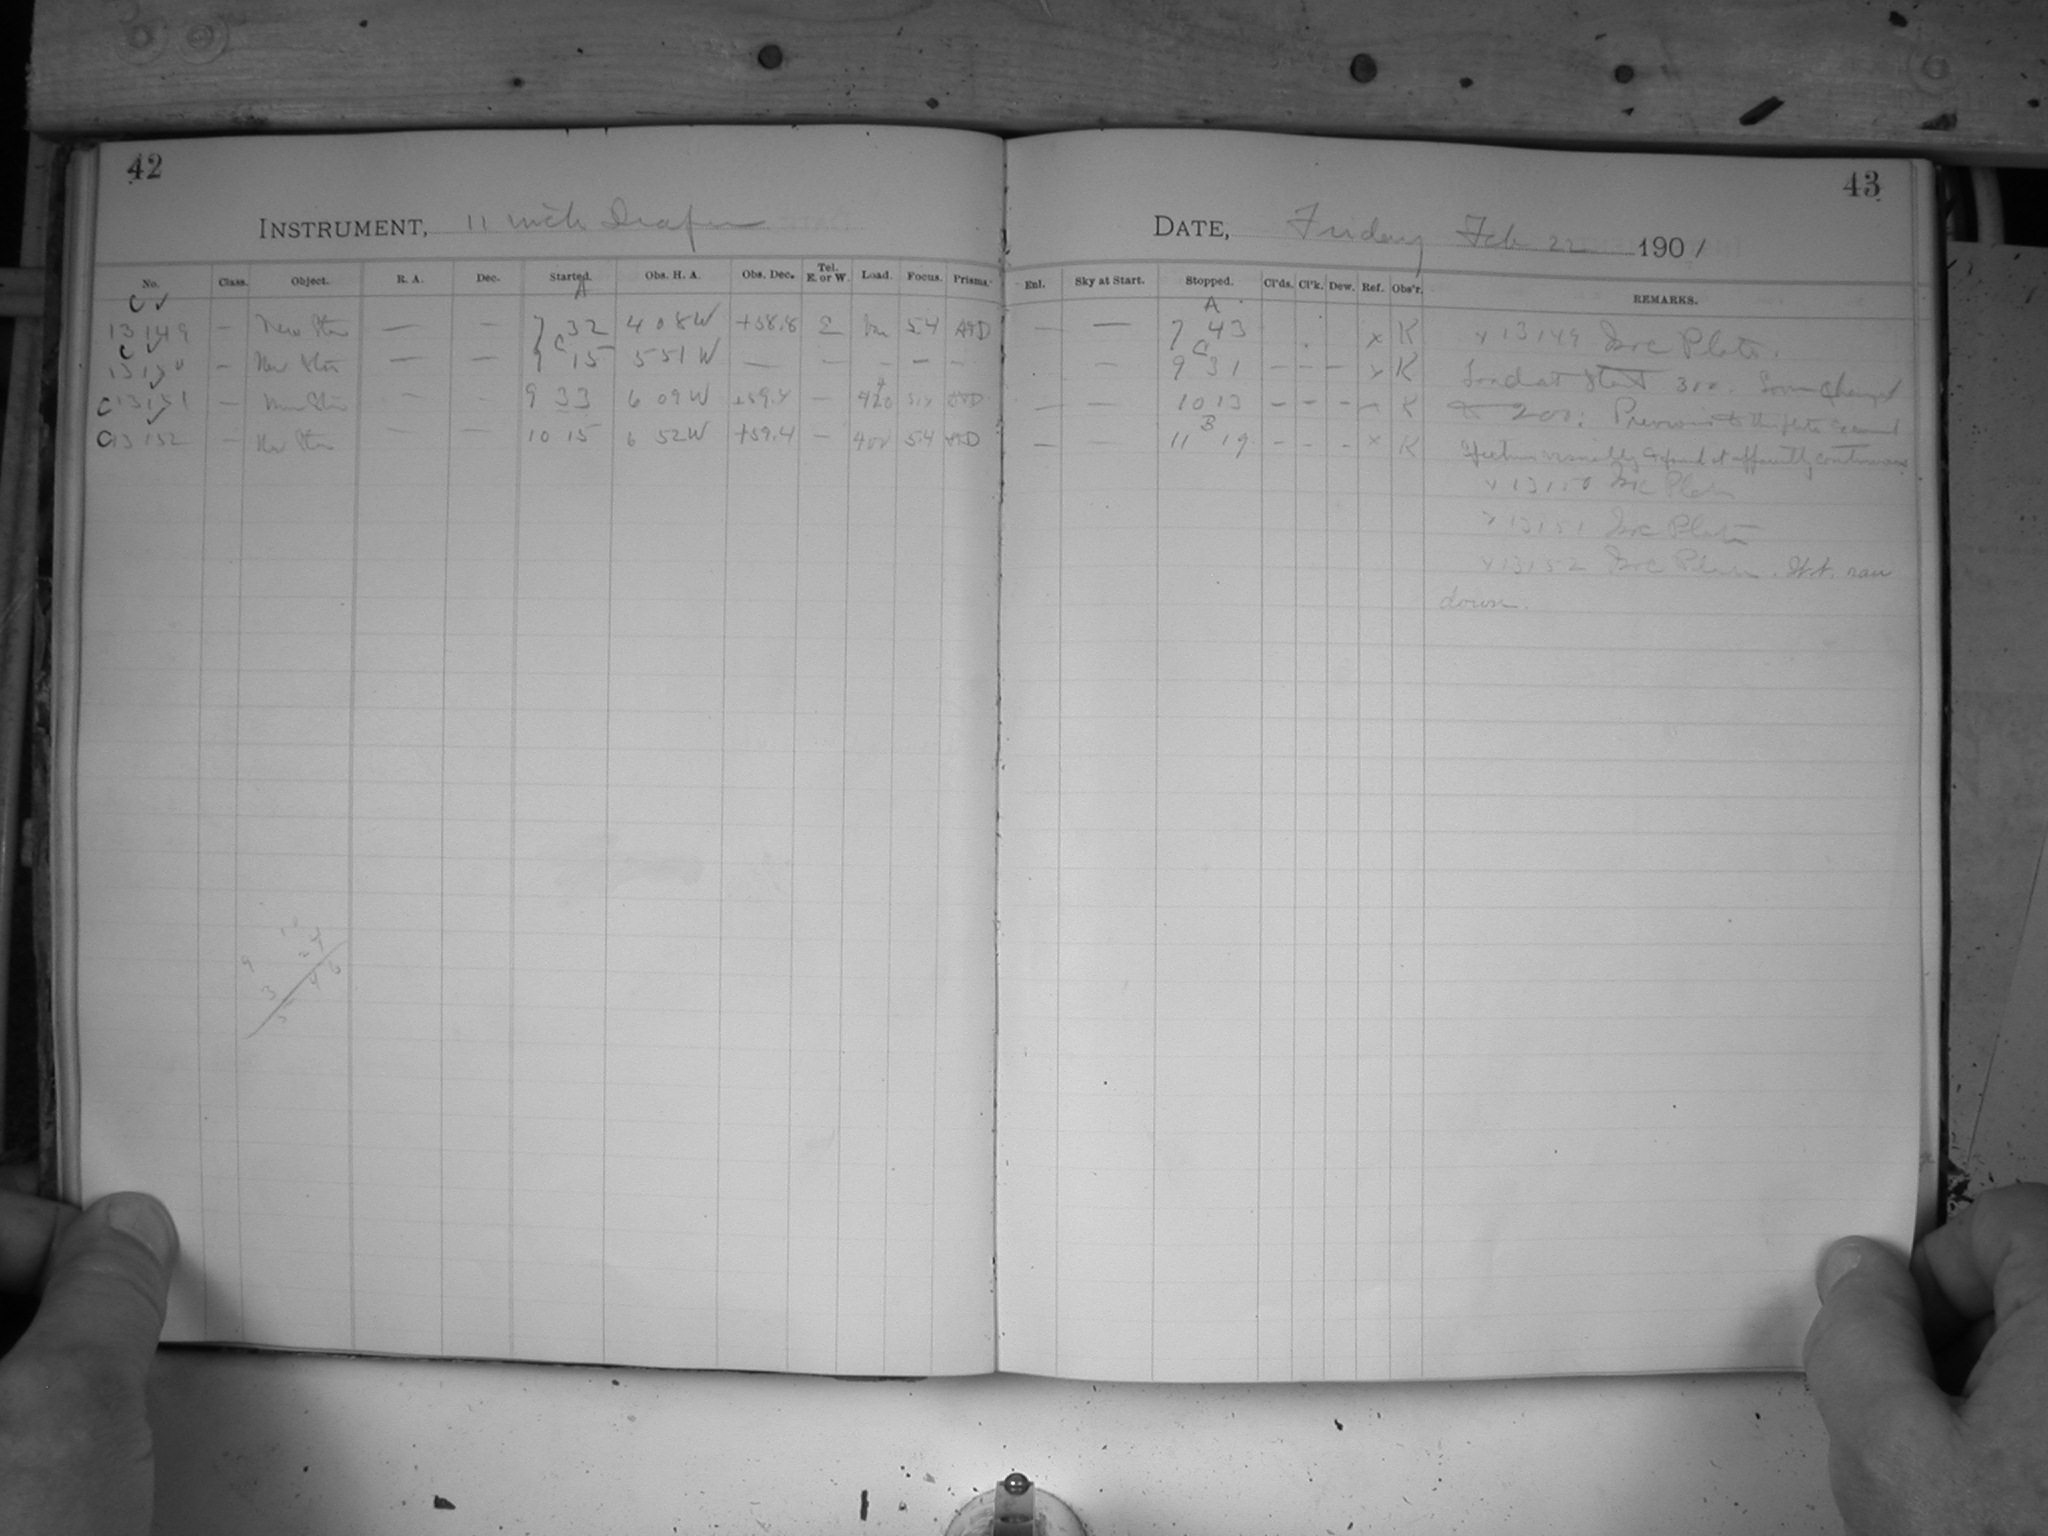 42
INSTRUMENT, 11 inch Draper
No. Class. Object. R. A. Dec. Started. Obs. H. A. Obs. Dec. Tel. E. or W. Load. Focus. Prisms.
C ✓ A
13149 — New Star — — 7 32 4 08 W +58.8 E 5.4
C ✓ C
13150 — New Star — — 9 15 5 51 W — — — — —
C 13151 — New Star — — 9 33 6 09 W +59.4 — 420
C 13152 — New Star — — 10 15 6 52 W +59.4 — 400 5.4
43
DATE, Friday Feb 22 1901
Enl. Sky at Start. Stopped. Cl'ds. Cl'k. Dew. Ref. Obs'r. REMARKS.
A
— — 7 43 x K x 13149 Iso Plate.
C
— — 9 31 — — — x K Load at Start 300. Soon changed
— — 10 13 — — — K to 200. Previous to this plate examd
B
— — 11 19 — — — x K Spectrum visually & found it apparently continuous
x 13150 Iso Plate
x 13151 Iso Plate
x 13152 Iso Plate. ran
down.